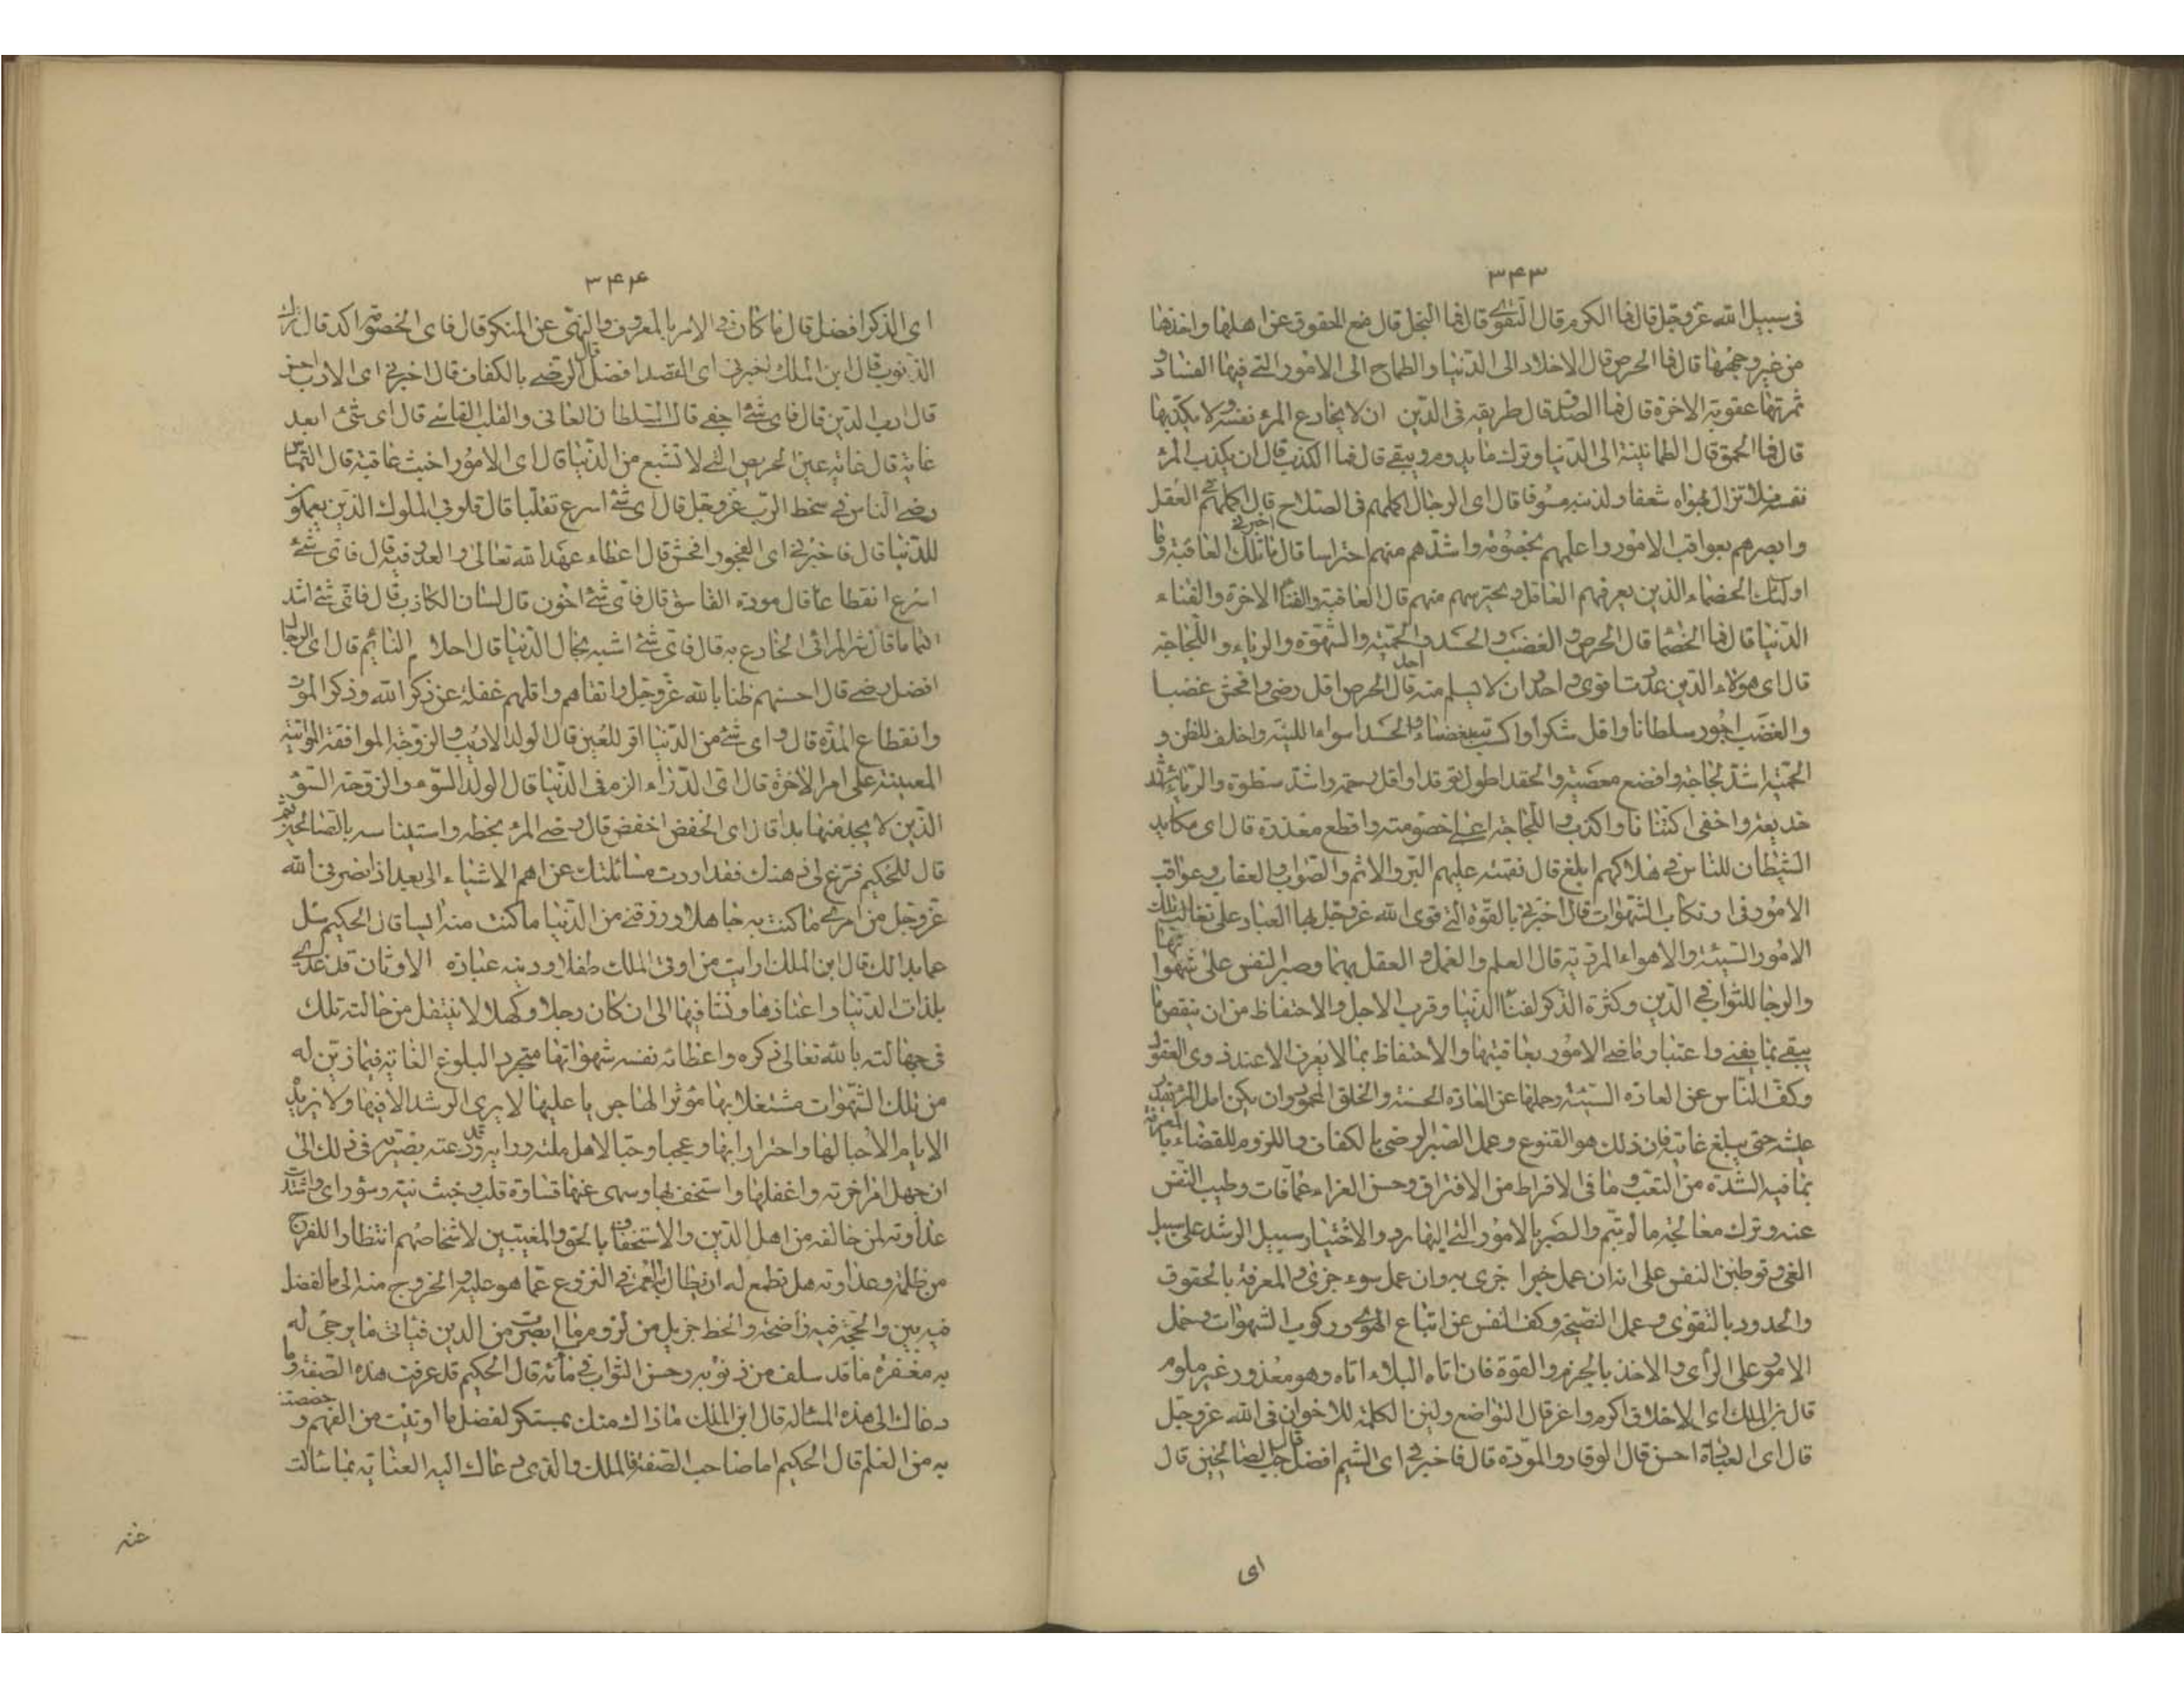 ٣۴٣
فى سبيل الله عزوجل قال فما الكرم قال التقوى قال فما البخل قال منع الحقوق عن اهلها واخذها
من غير وجهها قال فما الحرص قال الاخلاد الى الدنيا والطماح الى الامور التى فيها الفساد و
ثمرتها عقوبة الاخرة قال فما الصدق قال طريقه فى الدين ان لا يخادع المرء نفسه ولا يكذبها
قال فما الحمق قال الطمانينة الى الدنيا وترك ما يدوم ويبقى قال فما الكذب قال ان يكذب المرء
نفسه فلا تزال بهواه شعفا ولدينه مسوفا قال اى الرجال اكملهم فى الصلاح قال اكملهم فى العقل
وابصرهم بعواقب الامور واعلمهم بخصومه واشدهم منهم احتراسا قال اخبرنى ما تلك العاقبة وما
اولئك الخصماء الذين يعرفهم العاقل ويحترسهم منهم قال العاقبة والفناء الاخرة والفناء
الدنيا قال فما الخصماء قال الحرص والغضب والحسد والحمية والشهوة والرياء واللجاجة
قال اى هؤلاء الذين عددت اقوى واحد ان لا يسلم منه احد قال الحرص اقل رضى وافحش غضبا
والغضب اجور سلطانا واقل شكرا واكسب للبغضاء والحسد اسواء للنية واخلف للظن و
الحمية اشد لجاجة وافضع معصية والحقد اطول توقدا واقل رحمة واشد سطوة والرياء اشد
خديعة واخفى اكتنانا واكذب واللجاجة اعيى خصومة واقطع معذرة قال اى مكايد
الشيطان للناس فى هلاكهم ابلغ قال تعميته عليهم البر والاثم والصواب والعقاب وعواقب
الامور فى ارتكاب الشهوات قال اخبرنى بالقوة التى قوى الله عزوجل بها العباد على تغالب تلك
الامور السيئة والاهواء المردية قال العلم والعمل و العقل بهما وصبر النفس على شهواتها
والرجا للثواب فى الدين وكثرة الذكر لفناء الدنيا وقرب الاجل والاحتفاظ من ان ينقص ما
يبقى بما يفنى واعتبار ماضى الامور بعاقبتها والاحتفاظ بما لا يعرف الا عند ذوى العقول
وكف الناس عن العادة السيئة وحملها عن العادة الحسنة والخلق المحمود وان يكن امل المرء بقدر
عيشه حتى يبلغ غايته فان ذلك هو القنوع وعمل الصبر والرضى بالكفاف واللزوم للقضاء بالمعرفة
بما فيه الشدة من التعب وما فى الافراط من الاقتراق وحسن العزاء عما فات وطيب النفس
عنه وترك معالجة ما لو يتم والصبر بالامور التى اليها يرد والاختيار سبيل الرشد على سبيل
الغى وتوطين النفس على انه ان عمل خيرا جزى به وان عمل سوء جزى والمعرفة بالحقوق
والحدود بالتقوى وعمل النصيحة وكف النفس عن اتباع الهوى وركوب الشهوات وحمل
الامور على الراى والاخذ بالحزم والقوة فان اتاه البلاء اتاه وهو معذور غير ملوم
قال بن الملك اى الاخلاق اكرم واعز قال التواضع ولين الكلمة للاخوان فى الله عزوجل
قال اى العبادة احسن قال الوقار والمودة قال فاخبرنى اى الشيم افضل قال حب الصالحين قال
اى
٣۴۴
اى الذكر افضل قال ما كان فى الامر بالمعروف والنهى عن المنكر قال فاى الخصوم الد قال ارتكاب
الذنوب قال ابن الملك اخبرنى اى القصد افضل قال الرضى بالكفاف قال اخبرنى اى الادب احسن
قال ادب الدين قال فاى شئ اجفى قال السلطان العانى والقلب القاسى قال اى شئ ابعد
غاية قال غاية عين الحريص التى لا تشبع من الدنيا قال اى الامور اخبث عاقبة قال التماس
رضى الناس فى سخط الرب عزوجل قال اى شئ اسرع تقلبا قال قلوب الملوك الذين يعملون
للدنيا قال فاخبرنى اى الفجور افحش قال اعطاء عهد الله تعالى والعذر فيه قال فاى شئ
اسرع انقطاعا قال مودة الفاسق قال فاى شئ اخون قال لسان الكاذب قال فاى شئ اشد
اكتماما قال شر المرائى المخادع به قال فاى شئ اشبه بحال الدنيا قال احلام النائم قال اى الرجال
افضل رضى قال احسنهم ظنا بالله عزوجل واتقاهم واقلهم غفلة عن ذكر الله وذكر الموت
وانقطاع المدة قال واى شئ من الدنيا اقر للعين قال الولد الاديب والزوجة الموافقة المواتية
المعينة على امر الاخرة قال اى الدراء الزم فى الدنيا قال الولد السوء والزوجة السوء
الذين لا يجد منها بدا قال اى الخفض اخفض قال رضى المرء بحظه واستيناسه بالصالحين ثم
قال للحكيم فرغ لى ذهنك فقد اردت مسائلتك عن اهم الاشياء الى بعد اذ بصرنى الله
عزوجل من امرى ما كنت به جاهلا ورزقنى من الدنيا ما كنت منه ايسا قال الحكيم سل
عما بدا لك قال ابن الملك ارايت من اوتى الملك طفلا ودينه عبادة الاوثان قد غذى
بلذات الدنيا واعتادها ونشا فيها الى ان كان رجلا وكهلا لا ينتقل من حالته تلك
فى جهالته بالله تعالى ذكره واعطائه نفسه شهواتها متجردا لبلوغ الغاية فيما زين له
من تلك الشهوات مشتغلا بها مؤثرا لها جريا عليها لا يرى الرشد الا فيها ولا تزيده
الايام الا حبا لها واحترارا بها وعجبا وحبا لاهل ملته ورايه وقد دعته بصيرته فى ذلك الى
ان جهل امر اخرته واغفلها واستخف بها وسهى عنها قساوة قلب وخبث نية وسوء راى واشتد
عداوته لمن خالفه من اهل الدين والاستخفاف بالحق والمغيبين لاشخاصهم انتظارا للفرج
من ظلمه وعداوته هل تطمع له ان يطال بالعمر فى النزوع عما هو عليه والخروج منه الى ما الفضل
فيه بين والحجة فيه واضحة والحظ جزيل من لزوم ما ابصرت من الدين فياتى ما يرجى له
به مغفرة ما قد سلف من ذنوبه وحسن الثواب فى مآبه قال الحكيم قد عرفت هذه الصفة وما
دعاك الى هذه المسئالة قال ابن الملك ما ذاك منك بمستنكر لفضل ما اوتيت من الفهم وخصصت
به من العلم قال الحكيم اما صاحب الصفة فالملك والذى دعاك اليه العناية بما سالت
عنه